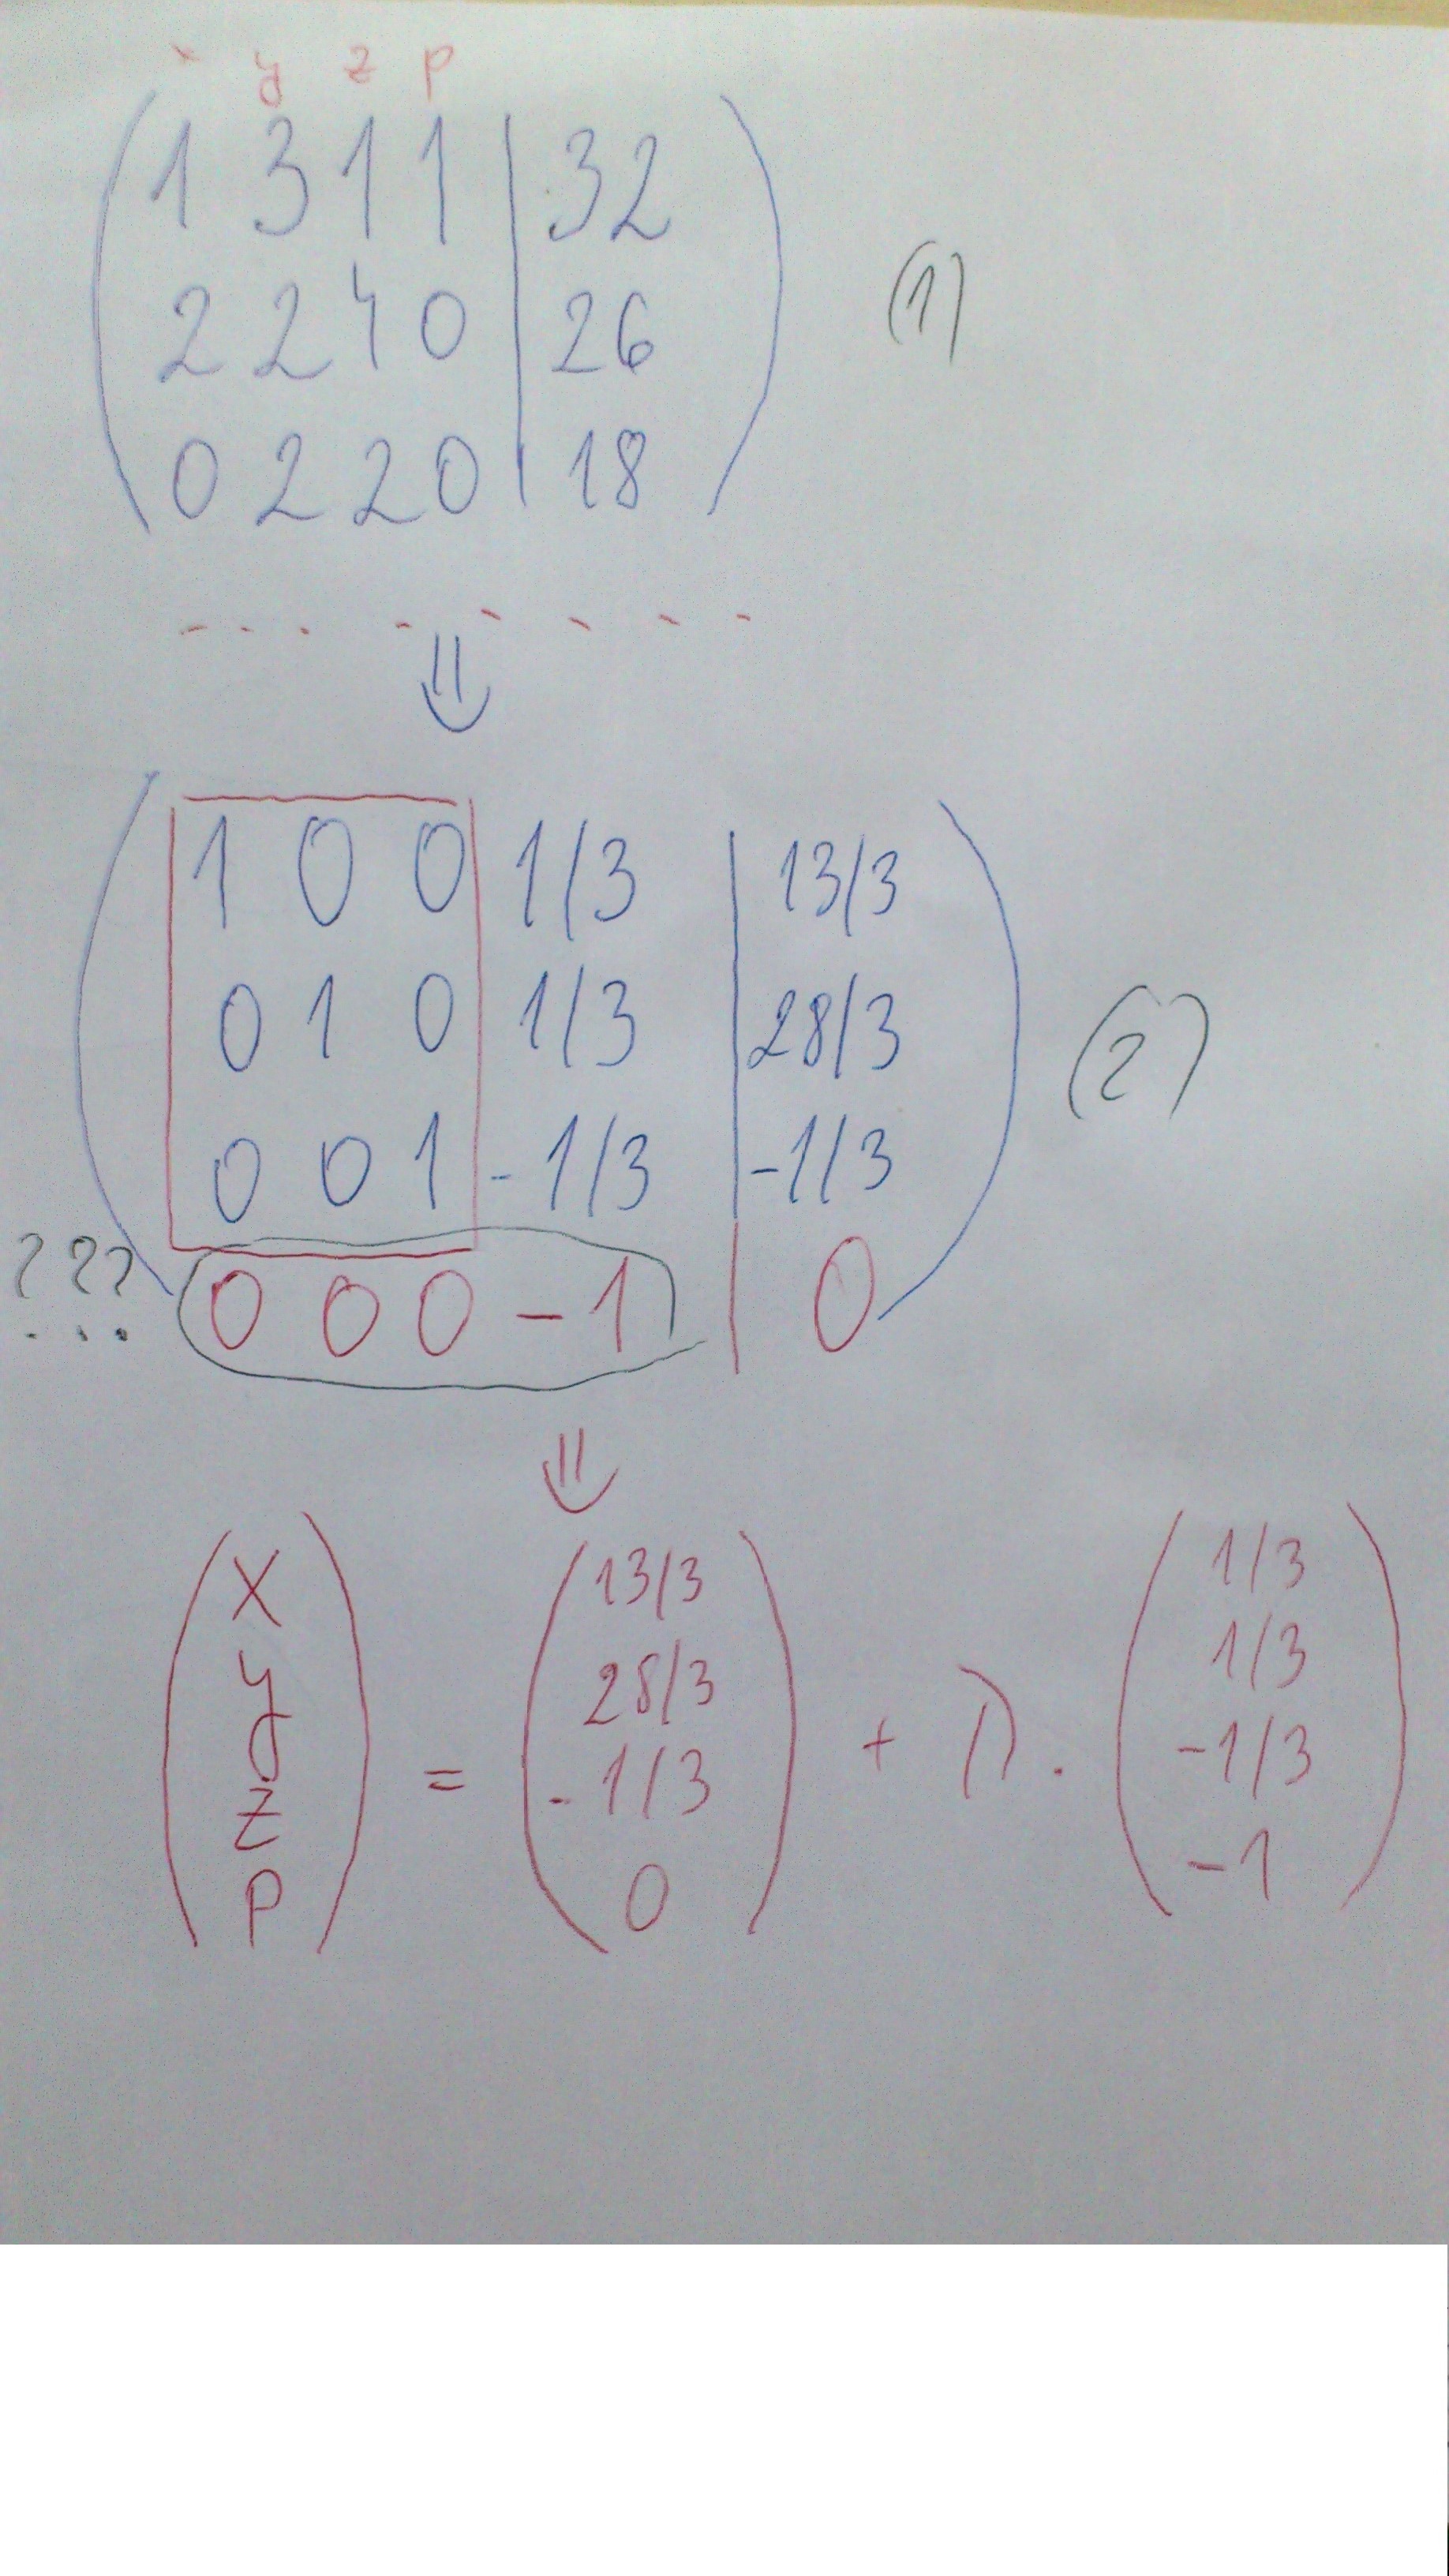 y z p
1 3 1 1 | 32
2 2 4 0 | 26
0 2 2 0 | 18
(1)
⇓
1 0 0 1/3 | 13/3
0 1 0 1/3 | 28/3
0 0 1 -1/3 | -1/3
(2)
??? 0 0 0 -1 | 0
...
⇓
x 13/3 1/3
y 28/3 1/3
z = -1/3 + λ · -1/3
p 0 -1